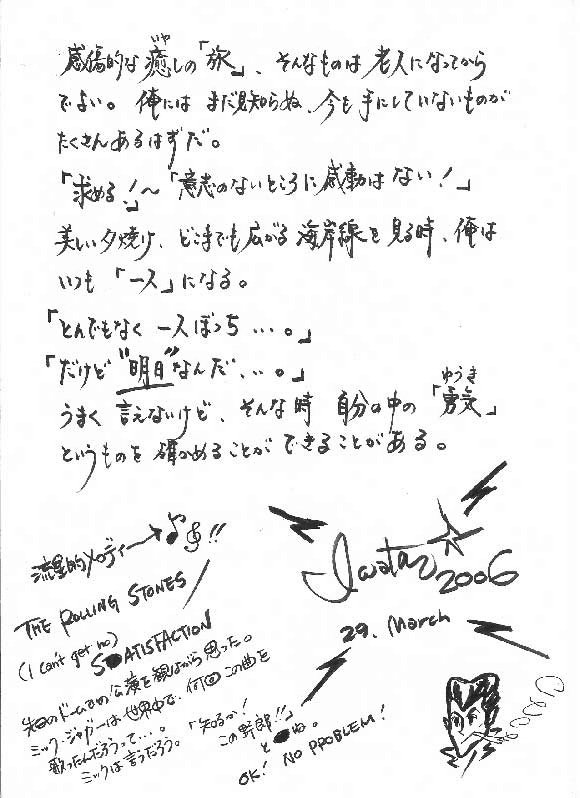 感傷的な癒しの「旅」、そんなものは老人になってから
でよい。俺にはまだ見知らぬ、今も手にしていないものが
たくさんあるはずだ。
「求める!」〜「意志のないところに感動はない!」
美しい夕焼け、どこまでも広がる海岸線を見る時、俺は
いつも「一人」になる。
「とんでもなく一人ぼっち…。」
「だけど"明日"なんだ…。」
うまく言えないけど、そんな時 自分の中の「勇気」
ゆうき
というものを確かめることができることがある。
流星的メロディー→♪!!
THE ROLLING STONES/
(I can't get no)
SATISFACTION
先日のドームでの公演を観ながら思った。
ミック・ジャガーは世界中で、何回この曲を
歌ったんだろうって…。
ミックは言うだろう。「知るか!
この野郎!!」
とね。
OK! NO PROBLEM!
2006
29. March